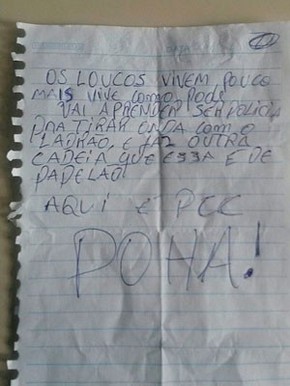 OS LOUCOS VIVEM POUCO
MAIS VIVE COMO PODE
VAI APRENDER SER POLICIA
PRA TIRAR ONDA COM O
LADRÃO, E FAZ OUTRA
CADEIA QUE ESSA E DE
PAPELÃO!
AQUI E PCC
POHA!